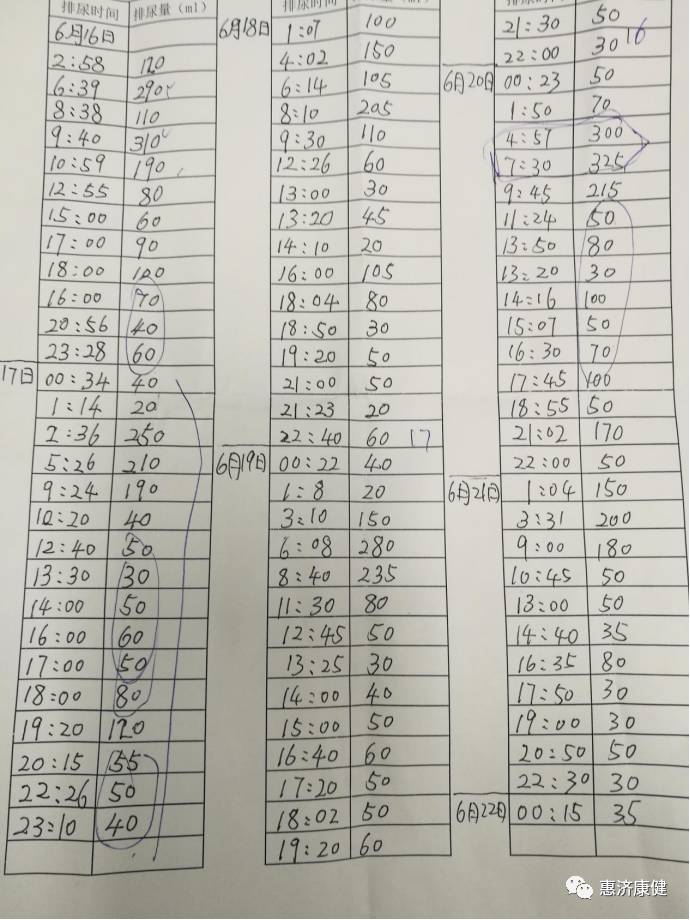 排尿时间 排尿量（ml）
6月16日
2:58 120
6:39 290
8:38 110
9:40 310
10:59 190
12:55 80
15:00 60
17:00 90
18:00 120
16:00 70
20:56 40
23:28 60
17日 00:34 40
1:14 20
2:36 250
5:26 210
9:24 190
10:20 40
12:40 50
13:30 30
14:00 50
16:00 60
17:00 50
18:00 80
19:20 120
20:15 55
22:26 50
23:10 40
排尿时间
6月18日 1:07 100
4:02 150
6:14 105
8:10 205
9:30 110
12:26 60
13:00 30
13:20 45
14:10 20
16:00 105
18:04 80
18:50 30
19:20 50
21:00 50
21:23 20
22:40 60 17
6月19日 00:22 40
1:8 20
3:10 150
6:08 280
8:40 235
11:30 80
12:45 50
13:25 30
14:00 40
15:00 50
16:40 60
17:20 50
18:02 50
19:20 60
21:30 50
22:00 30 16
6月20日 00:23 50
1:50 70
4:57 300
7:30 325
9:45 215
11:24 50
13:50 80
13:20 30
14:16 100
15:07 50
16:30 70
17:45 100
18:55 50
21:02 170
22:00 50
6月21日 1:04 150
3:31 200
9:00 180
10:45 50
13:00 50
14:40 35
16:35 80
17:50 30
19:00 30
20:50 50
22:30 30
6月22日 00:15 35
惠济康健